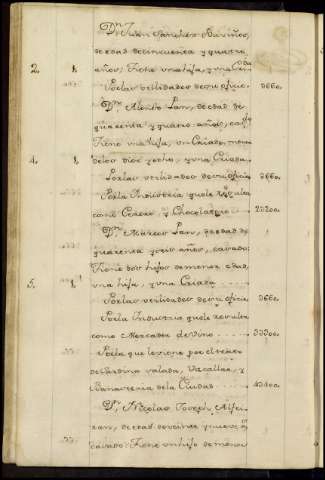 Dn. Juan Sanchez
de edad de cincuenta y quatro
años; Tiene una hija, y una Criada
2. 1.
Por las utilidades de su oficio 3660.
Dn. Alonso Lan, de edad de
quarenta y quatro años, casado
Tiene una hija, un Criado, menor
de los diez y ocho, y una Criada
4. 1.
Por las utilidades de su oficio 3660.
Por la Industria que le resulta
como Cerero, y Chocolatero 20200.
Dn. Marcos Lan, de edad de
quarenta y seis años, casado:
Tiene dos hijos de menor edad,
una hija, y una Criada
5. 1.
Por las utilidades de su oficio 3660.
Por la Industria que le resulta
como Mercader de Vino
Por la que le viene por el
de Sardina salada, Vacallao, y
de la Ciudad
Dn. Nicolas Joseph
de edad de veinte y nueve años
casado: Tiene un hijo de menor